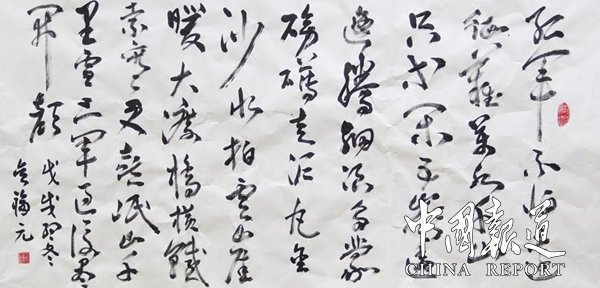 红军不怕远
征難萬水千山
只等闲五岭逶
迤腾细浪乌蒙
磅礴走泥丸金
沙水拍雲崖
暖大渡橋横鐵
索寒更喜岷山千
里雪三军过后尽
开颜 戊戌初冬
福元
中國報道
CHINA REPORT